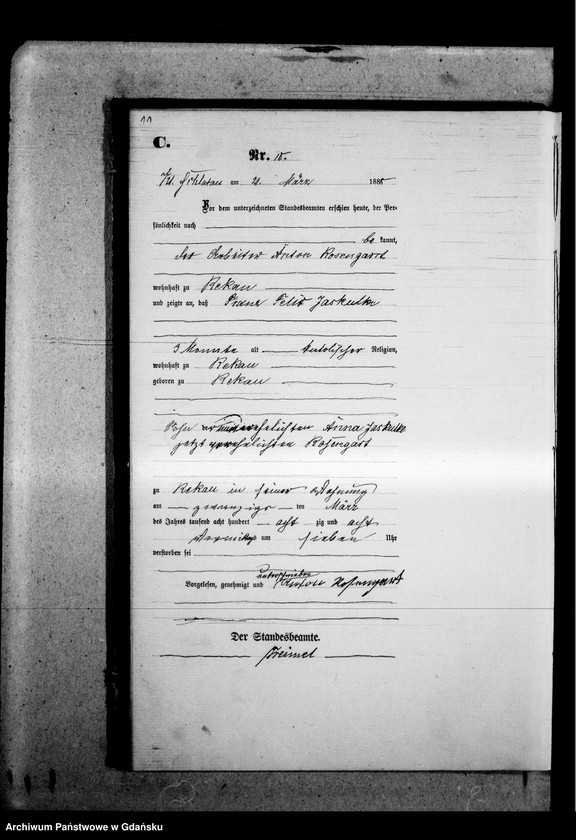 11
C.
Nr. 10.
am 21. März 1888
Vor dem unterzeichneten Standesbeamten erschien heute, der Per-
sönlichkeit nach
be kannt,
der Arbeiter Anton Rosengart
wohnhaft zu Rekau
und zeigte an, daß Franz Felix Jaskulke
3 Monate alt katolischer Religion,
wohnhaft zu Rekau
geboren zu Rekau
Sohn der unverehelichten Anna Jaskulke
jetzt verehelichten Rosengart
zu Rekau in seiner Wohnung
am zwanzigs ten März
des Jahres tausend acht hundert acht zig und acht
Vormittags um sieben Uhr
verstorben sei
unterschrieben
Vorgelesen, genehmigt und Anton Rosengart
Der Standesbeamte.
Archiwum Państwowe w Gdańsku